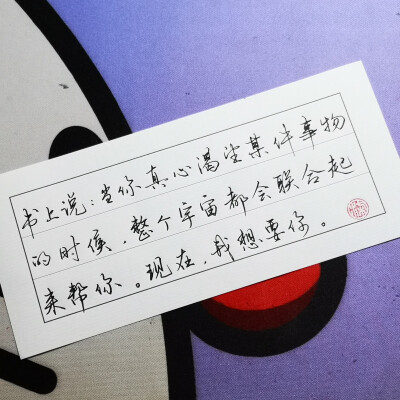 书上说：当你真心渴望某件事物
的时候，整个宇宙都会联合起
来帮你。现在，我想要你。